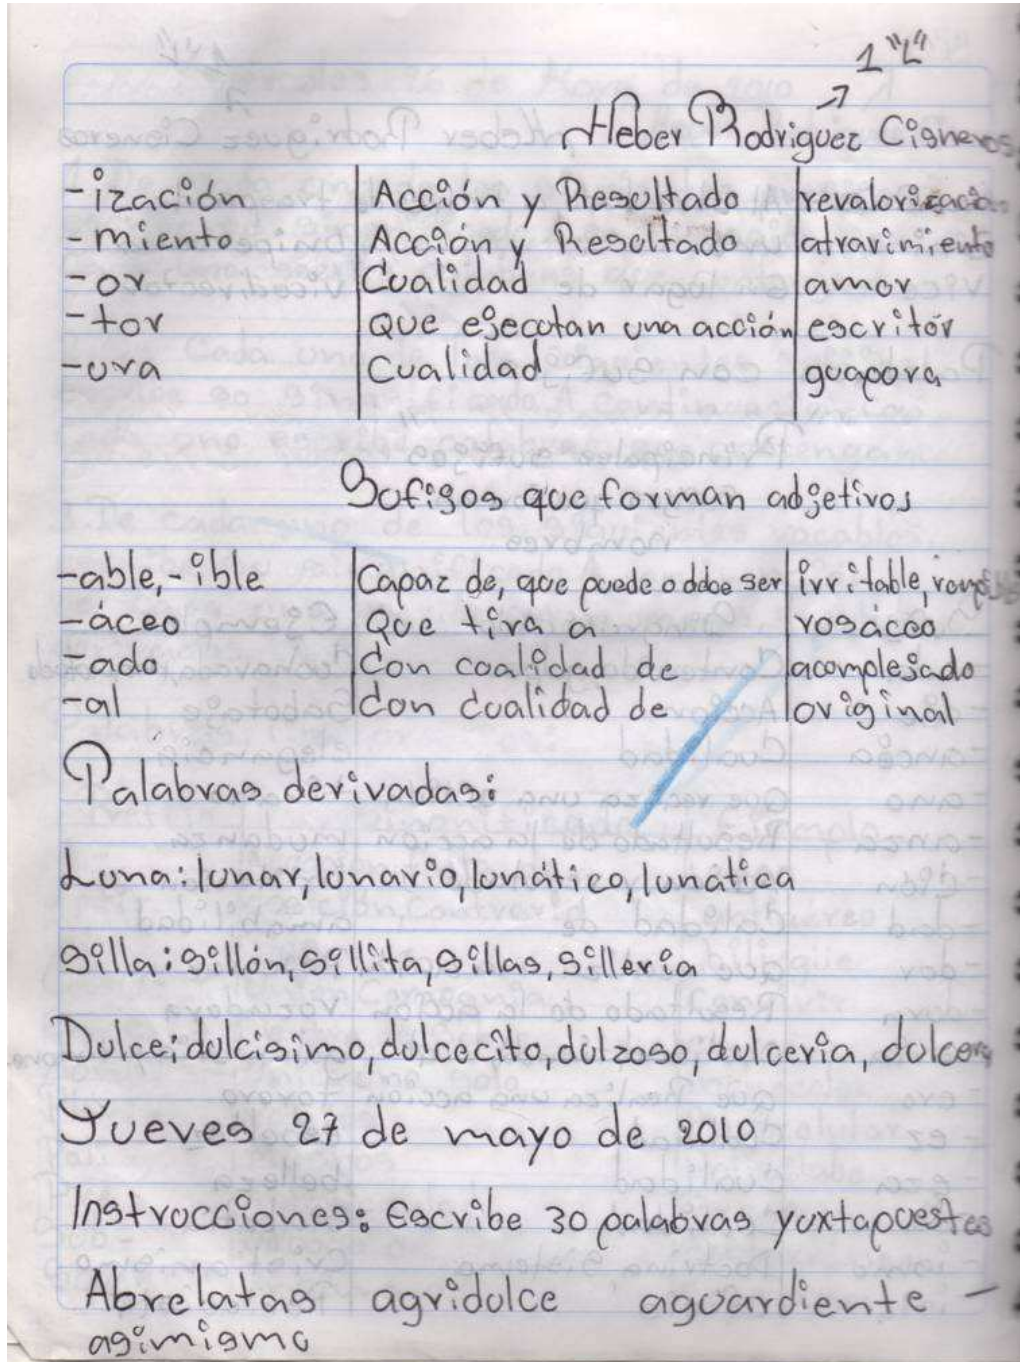 1 "L"
Heber Rodriguez Cisneros
-ización Acción y Resultado revalorizació
-miento Acción y Resultado atravimiento
-or Cualidad amor
-tor Que ejecutan una acción escritór
-ura Cualidad guapura
Sufijos que forman adjetivos
-able, -ible Capaz de, que puede o debe ser irritable,
-áceo Que tira a rosáceo
-ado Con cualidad de acomplejado
-al Con cualidad de original
Palabras derivadas:
Luna: lunar, lunario, lunático, lunatica
Silla: sillón, sillita, sillas, silleria
Dulce; dulcisimo, dulcecito, dulzoso, dulceria, dulcera
Jueves 27 de mayo de 2010
Instrucciones: Escribe 30 palabras yuxtapuestas
Abrelatas agridulce aguardiente -
asimismo